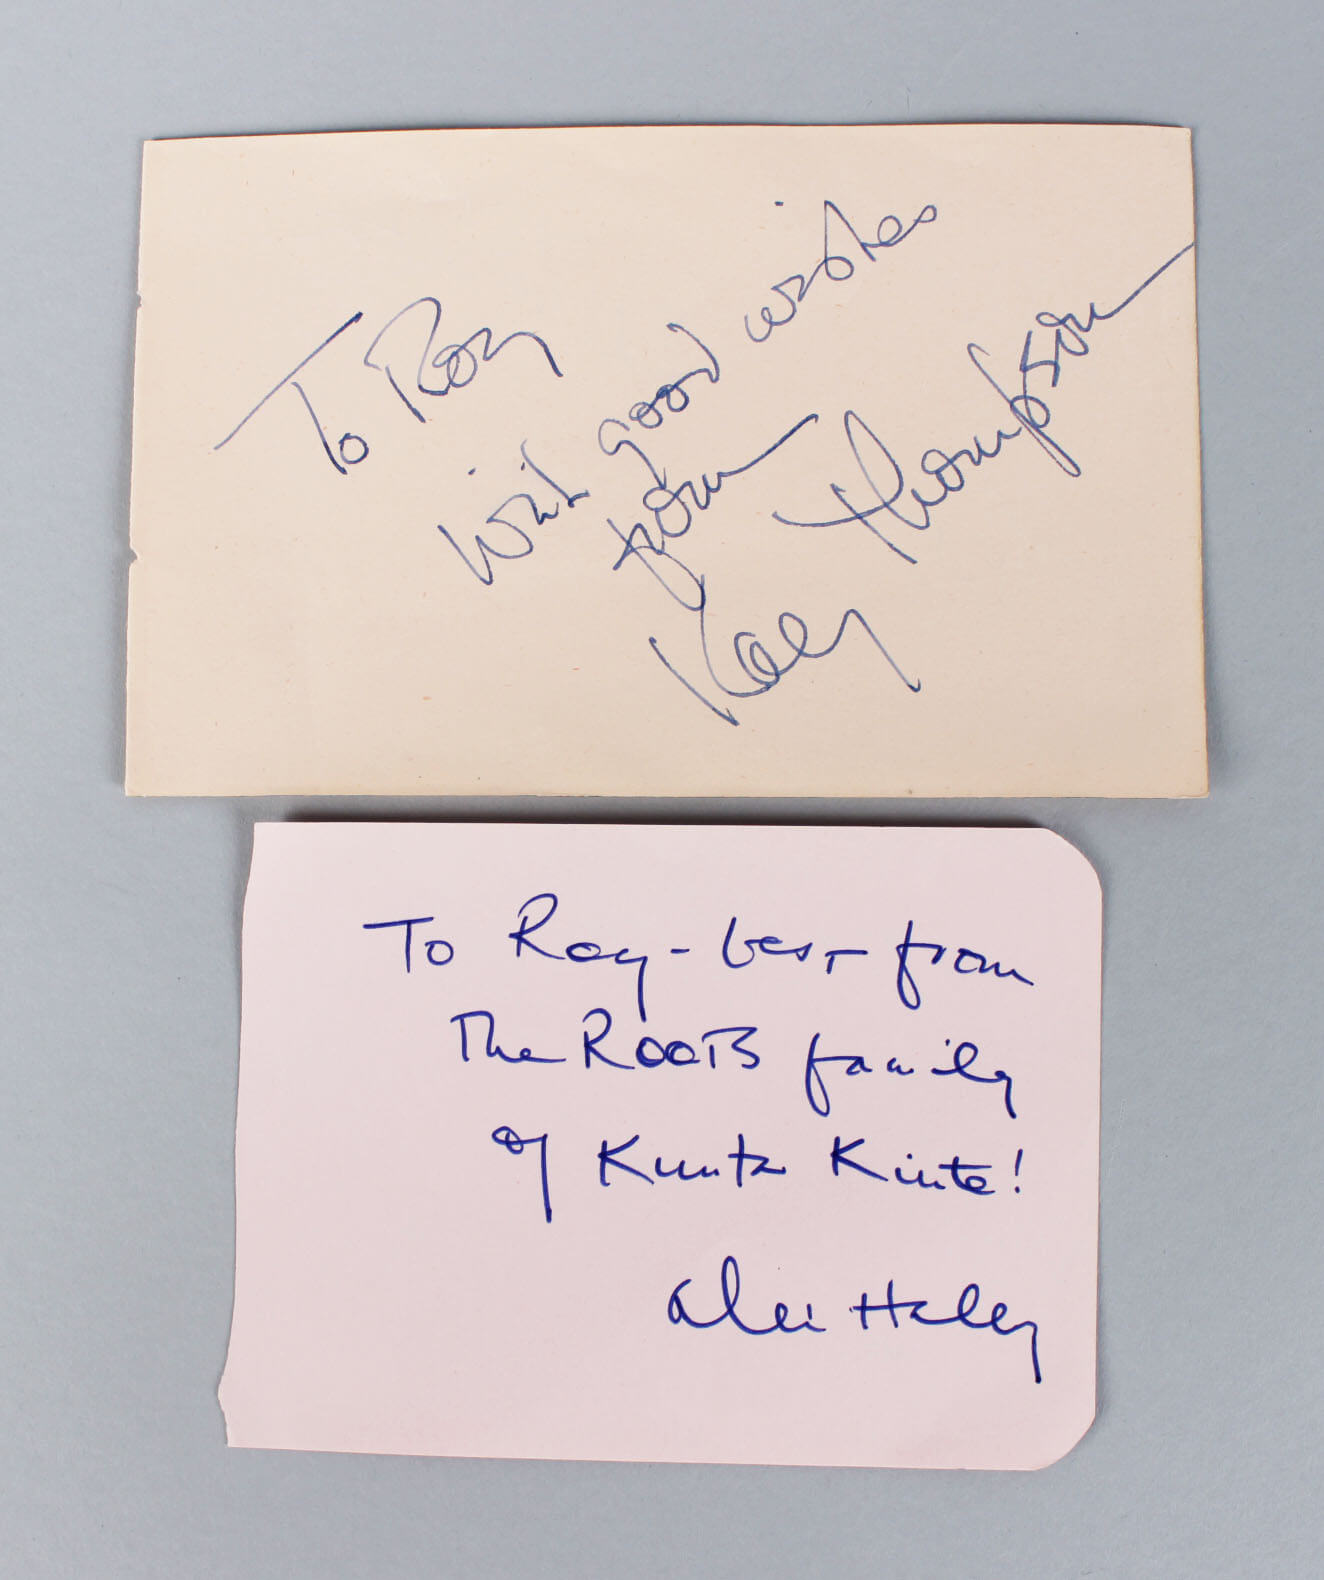 To Roy
with good wishes
from
Kay Thompson
To Roy - best from
The ROOTS family
of Kunta Kinte!
Alex Haley